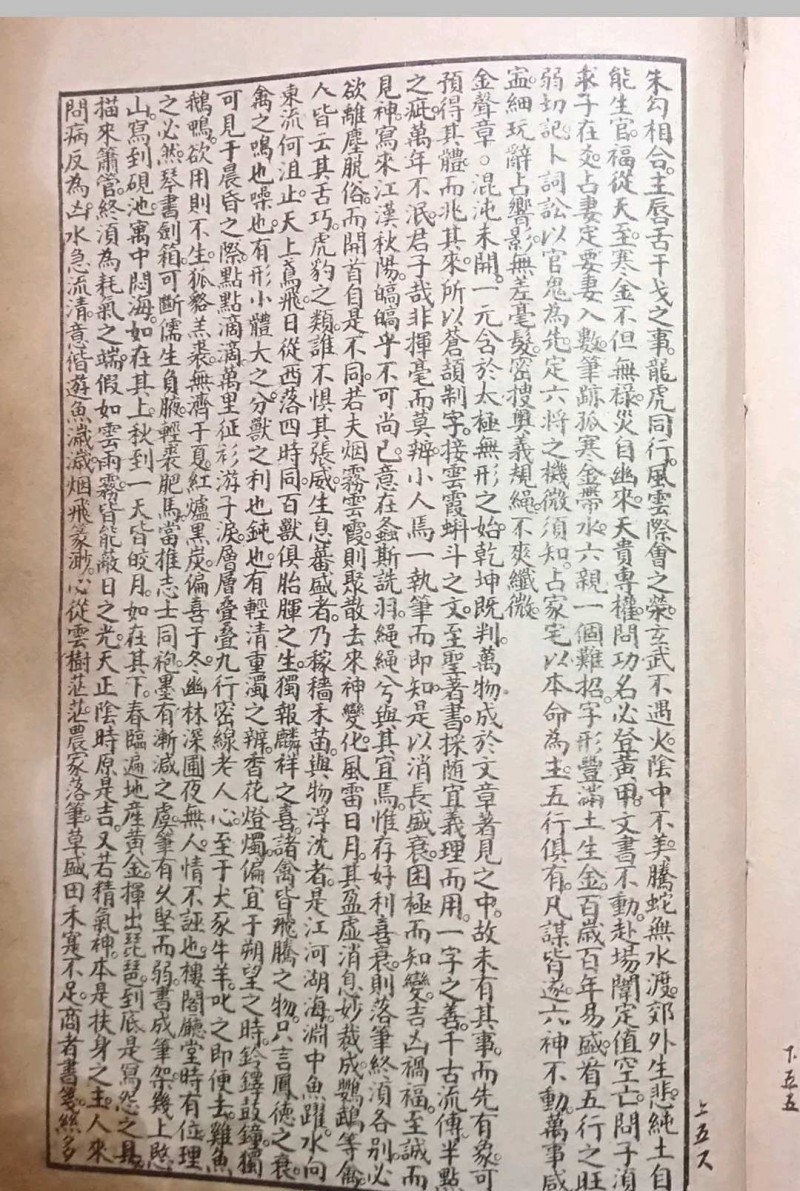 朱勾相合。主唇舌干戈之事。龍虎同行。風雲際會之榮。玄武不遇火。陰中不美。騰蛇無水渡。郊外生悲。純土自
能生官。福從天至。寒金不但無祿。災自幽來。天貴專權。問功名必登黃甲。文書不動。赴場闈定值空亡。問子湏
求子在爻。占妻定要妻入數。筆跡孤寒金帶水。六親一個難招。字形豐滿土生金。百歲百年易盛。首五行之旺
弱。切記卜詞訟以官鬼為先。定六將之機微。須知占家宅以本命為主。五行俱有。凡謀皆遂。六神不動。萬事咸
寍。細玩辭占。響影無差毫髮。密搜奧義。規繩不爽纖微。
金聲章。混沌未開。一元含於太極無形之始。乾坤既判。萬物成於文章著見之中。故未有其事。而先有象可
預得其體而兆其來。所以蒼頡制字。接雲霞蝌斗之文。至聖著書。採随宜義理而用。一字之善。千古流傳。半點
之疵。萬年不泯。君子哉非揮毫而莫辨。小人焉一執筆而即知。是以消長盛衰。困極而知變。吉凶禍福。至誠而
見神。寫來江漢秋陽。皜皜乎不可尚已。意在螽斯詵羽。繩繩兮與其宜焉。惟存好利喜衰。則落筆終湏各別。必
欲離塵脱俗。而開首自是不同。若夫烟霧雲霞。則聚散去來神變化。風雷日月。其盈虛消息妙裁成。鸚鵡等禽
人皆云其舌巧。虎豹之類。誰不惧其張威。生息蕃盛者。乃稼穡禾苗。與物浮沈者。是江河湖海。淵中魚躍。水向
東流何沮止。天上鳶飛。日從西落四時同。百獸俱胎腪之生。獨報麟祥之喜。諸禽皆飛騰之物。只言鳳德之衰
禽之鳴也噪也。有形小體大之分。獸之利也鈍也。有輕清重濁之辨。香花燈燭。偏宜于朔望之時。鈴鐸鼓鐘。獨
可見于晨昏之際。點點滴滴。萬里征衫游子淚。層層叠叠。九行密線老人心。至于犬豕牛羊。叱之即便去。雞魚
鵝鴨。欲用則不生。狐貉羔裘。無濟于夏。紅爐黑炭。偏喜于冬。幽林深圃夜無人。情不誣也。樓閣廳堂時有位。理
之必然。琴書劍箱。可斷儒生負腋。輕裘肥馬。當推志士同袍。墨有漸減之虞。筆有乆堅而弱。書成筆架。幾上㤙
山。寫到硯池。寓中悶海。如在其上。秋到一天皆皎月。如在其下。春臨遍地產黃金。揮出琵琶。到底是寫怨之具
描來簫管。終湏為耗氣之端。假如雲雨霧。皆能蔽日之光。天正陰時原是吉。又若精氣神。本是扶身之主。人來
問病反為凶。水急流清。意偕遊魚濊濊。烟飛篆渺。心從雲樹茫茫。農家落筆。草盛田禾寔不足。商者書箋。絲多
上五八
下五五